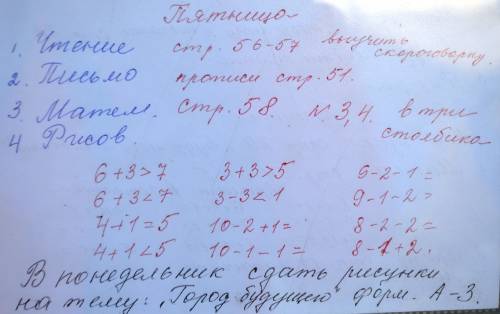 Пятница
1. Чтение стр. 56-57 выучить скороговорку.
2. Письмо прописи стр. 51.
3 Матем. стр. 58. №3,4. в три столбика
4 Рисов.
6+3>7 3+3>5 9-2-1=
6+3<7 3-3<1 9-1-2=
4+1=5 10-2+1= 8-2-2=
4+1<5 10-1-1= 8-1+2.
В понедельник сдать рисунки
на тему: „Город будущего" форм. А-3.